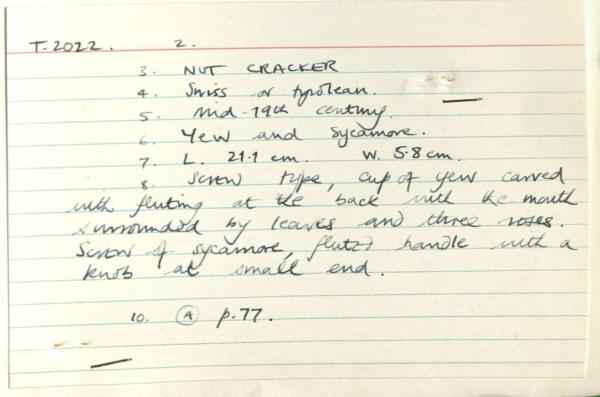 T-2022. 2.
3. NUT CRACKER
4. Swiss or tyrolean.
5. Mid-19th century.
6. Yew and Sycamore.
7. L. 21.1 cm. W. 5.8 cm.
8. Screw type, cup of yew carved
with fluting at the back with the mouth
surrounded by leaves and three roses.
Screw of sycamore, fluted handle with a
knob at small end.
10. (A) p.77.